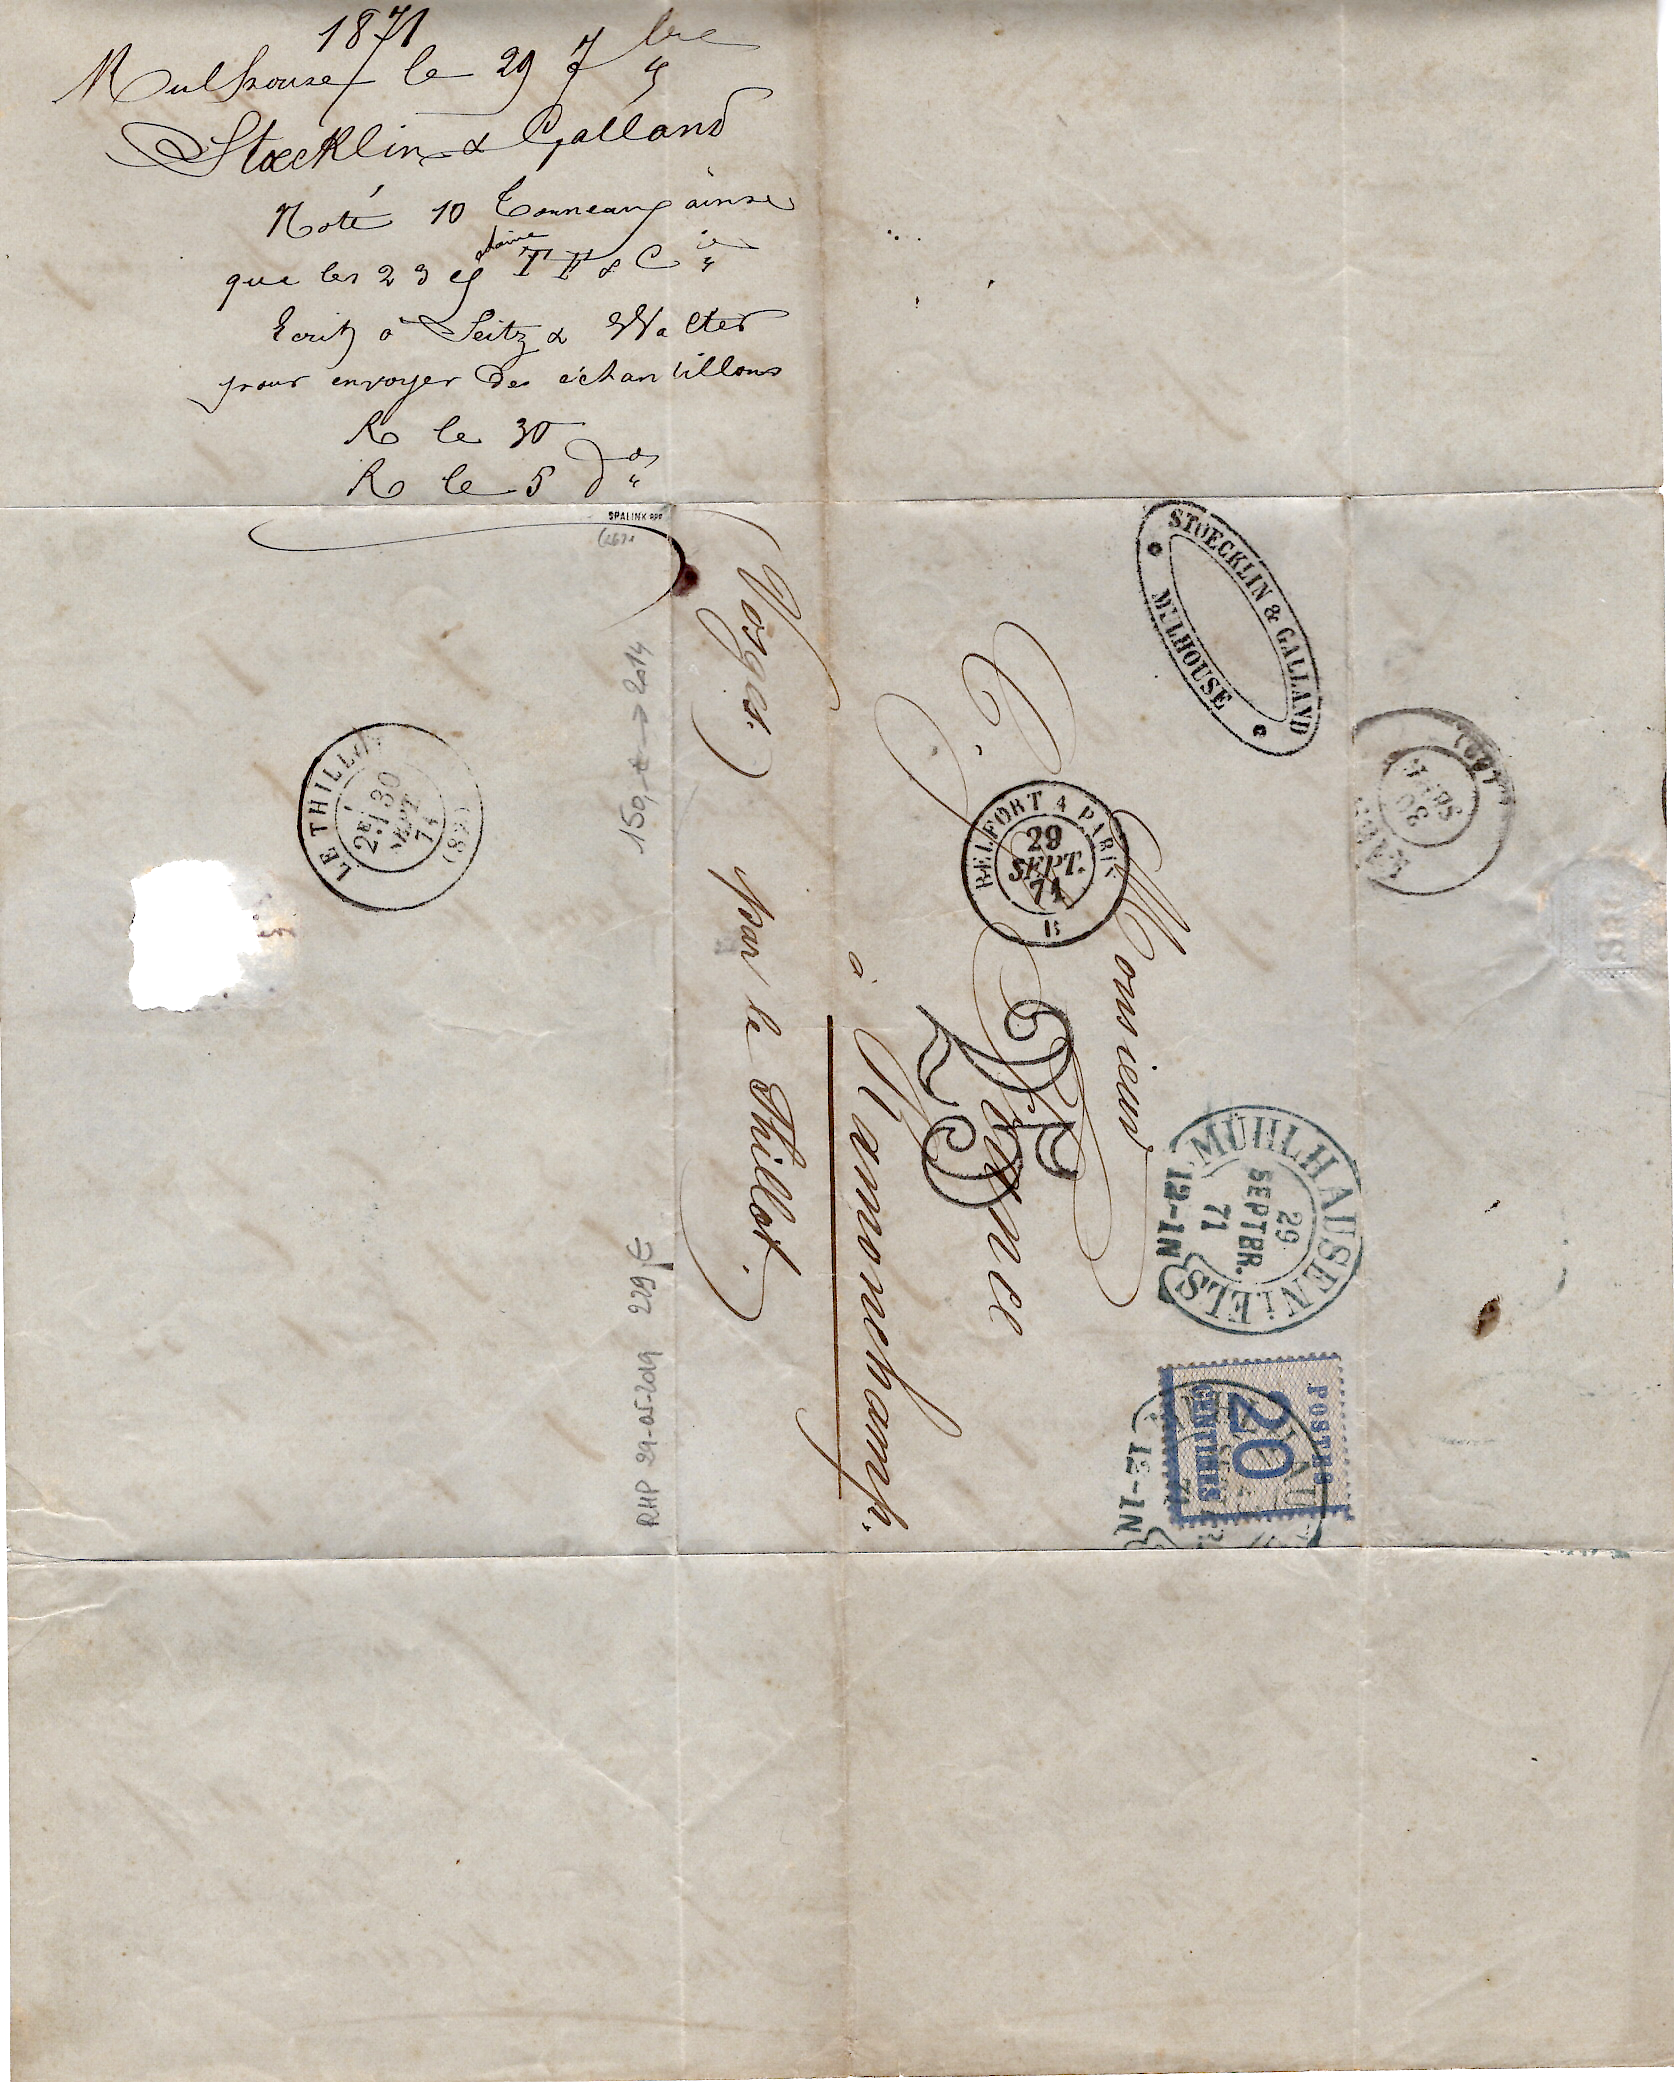 1871
Mulhouse le 29 7bre
Stoecklin & Galland
Noté 10 Tonneaux ainsi
que les 23 TF & Cie
Ecrit à Seitz & Walter
pour envoyer des échantillons
R le 30
R le 5 do
SPALINK
STOECKLIN & GALLAND
MULHOUSE
Monsieur
C. 
à Ramonchamp.
par le Thillot.
(Vosges.)
BELFORT A PARIS
29
SEPT.
71
B
25
MÜHLHAUSEN i ELS
29
SEPTBR.
71
12-1N
POSTES
20
CENTIMES
12-1N
LE THILLOT
2E
30
SEPT
71
(82)
30
SEPT
150,- € → 2014
RHP 29-05-2019 229 €